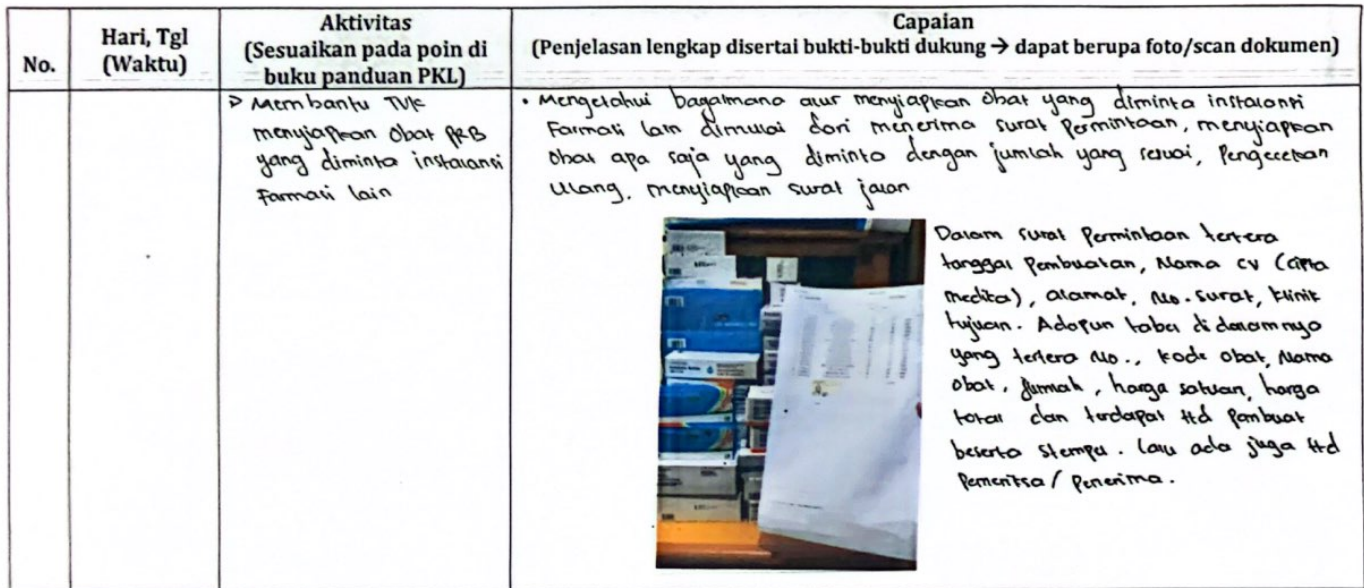 No.
Hari, Tgl
(Waktu)
Aktivitas
(Sesuaikan pada poin di
buku panduan PKL)
Capaian
(Penjelasan lengkap disertai bukti-bukti dukung → dapat berupa foto/scan dokumen)
> Membantu TVK
menyiapkan obat PRB
yang diminta instalansi
Farmasi lain
• Mengetahui bagaimana alur menyiapkan obat yang diminta instalansi
Farmasi lain dimulai dari menerima surat permintaan, menyiapkan
obat apa saja yang diminta dengan jumlah yang sesuai, Pengecekan
Ulang, menyiapkan surat jalan
Dalam surat Permintaan tertera
tanggal Pembuatan, Nama CV (Cipta
medika), alamat, No. surat, klinik
tujuan. Adapun tabel di dalamnya
yang tertera No., kode obat, Nama
obat, Jumlah, harga satuan, harga
total dan terdapat ttd pembuat
beserta stempel. lalu ada juga ttd
Pemeriksa / Penerima.